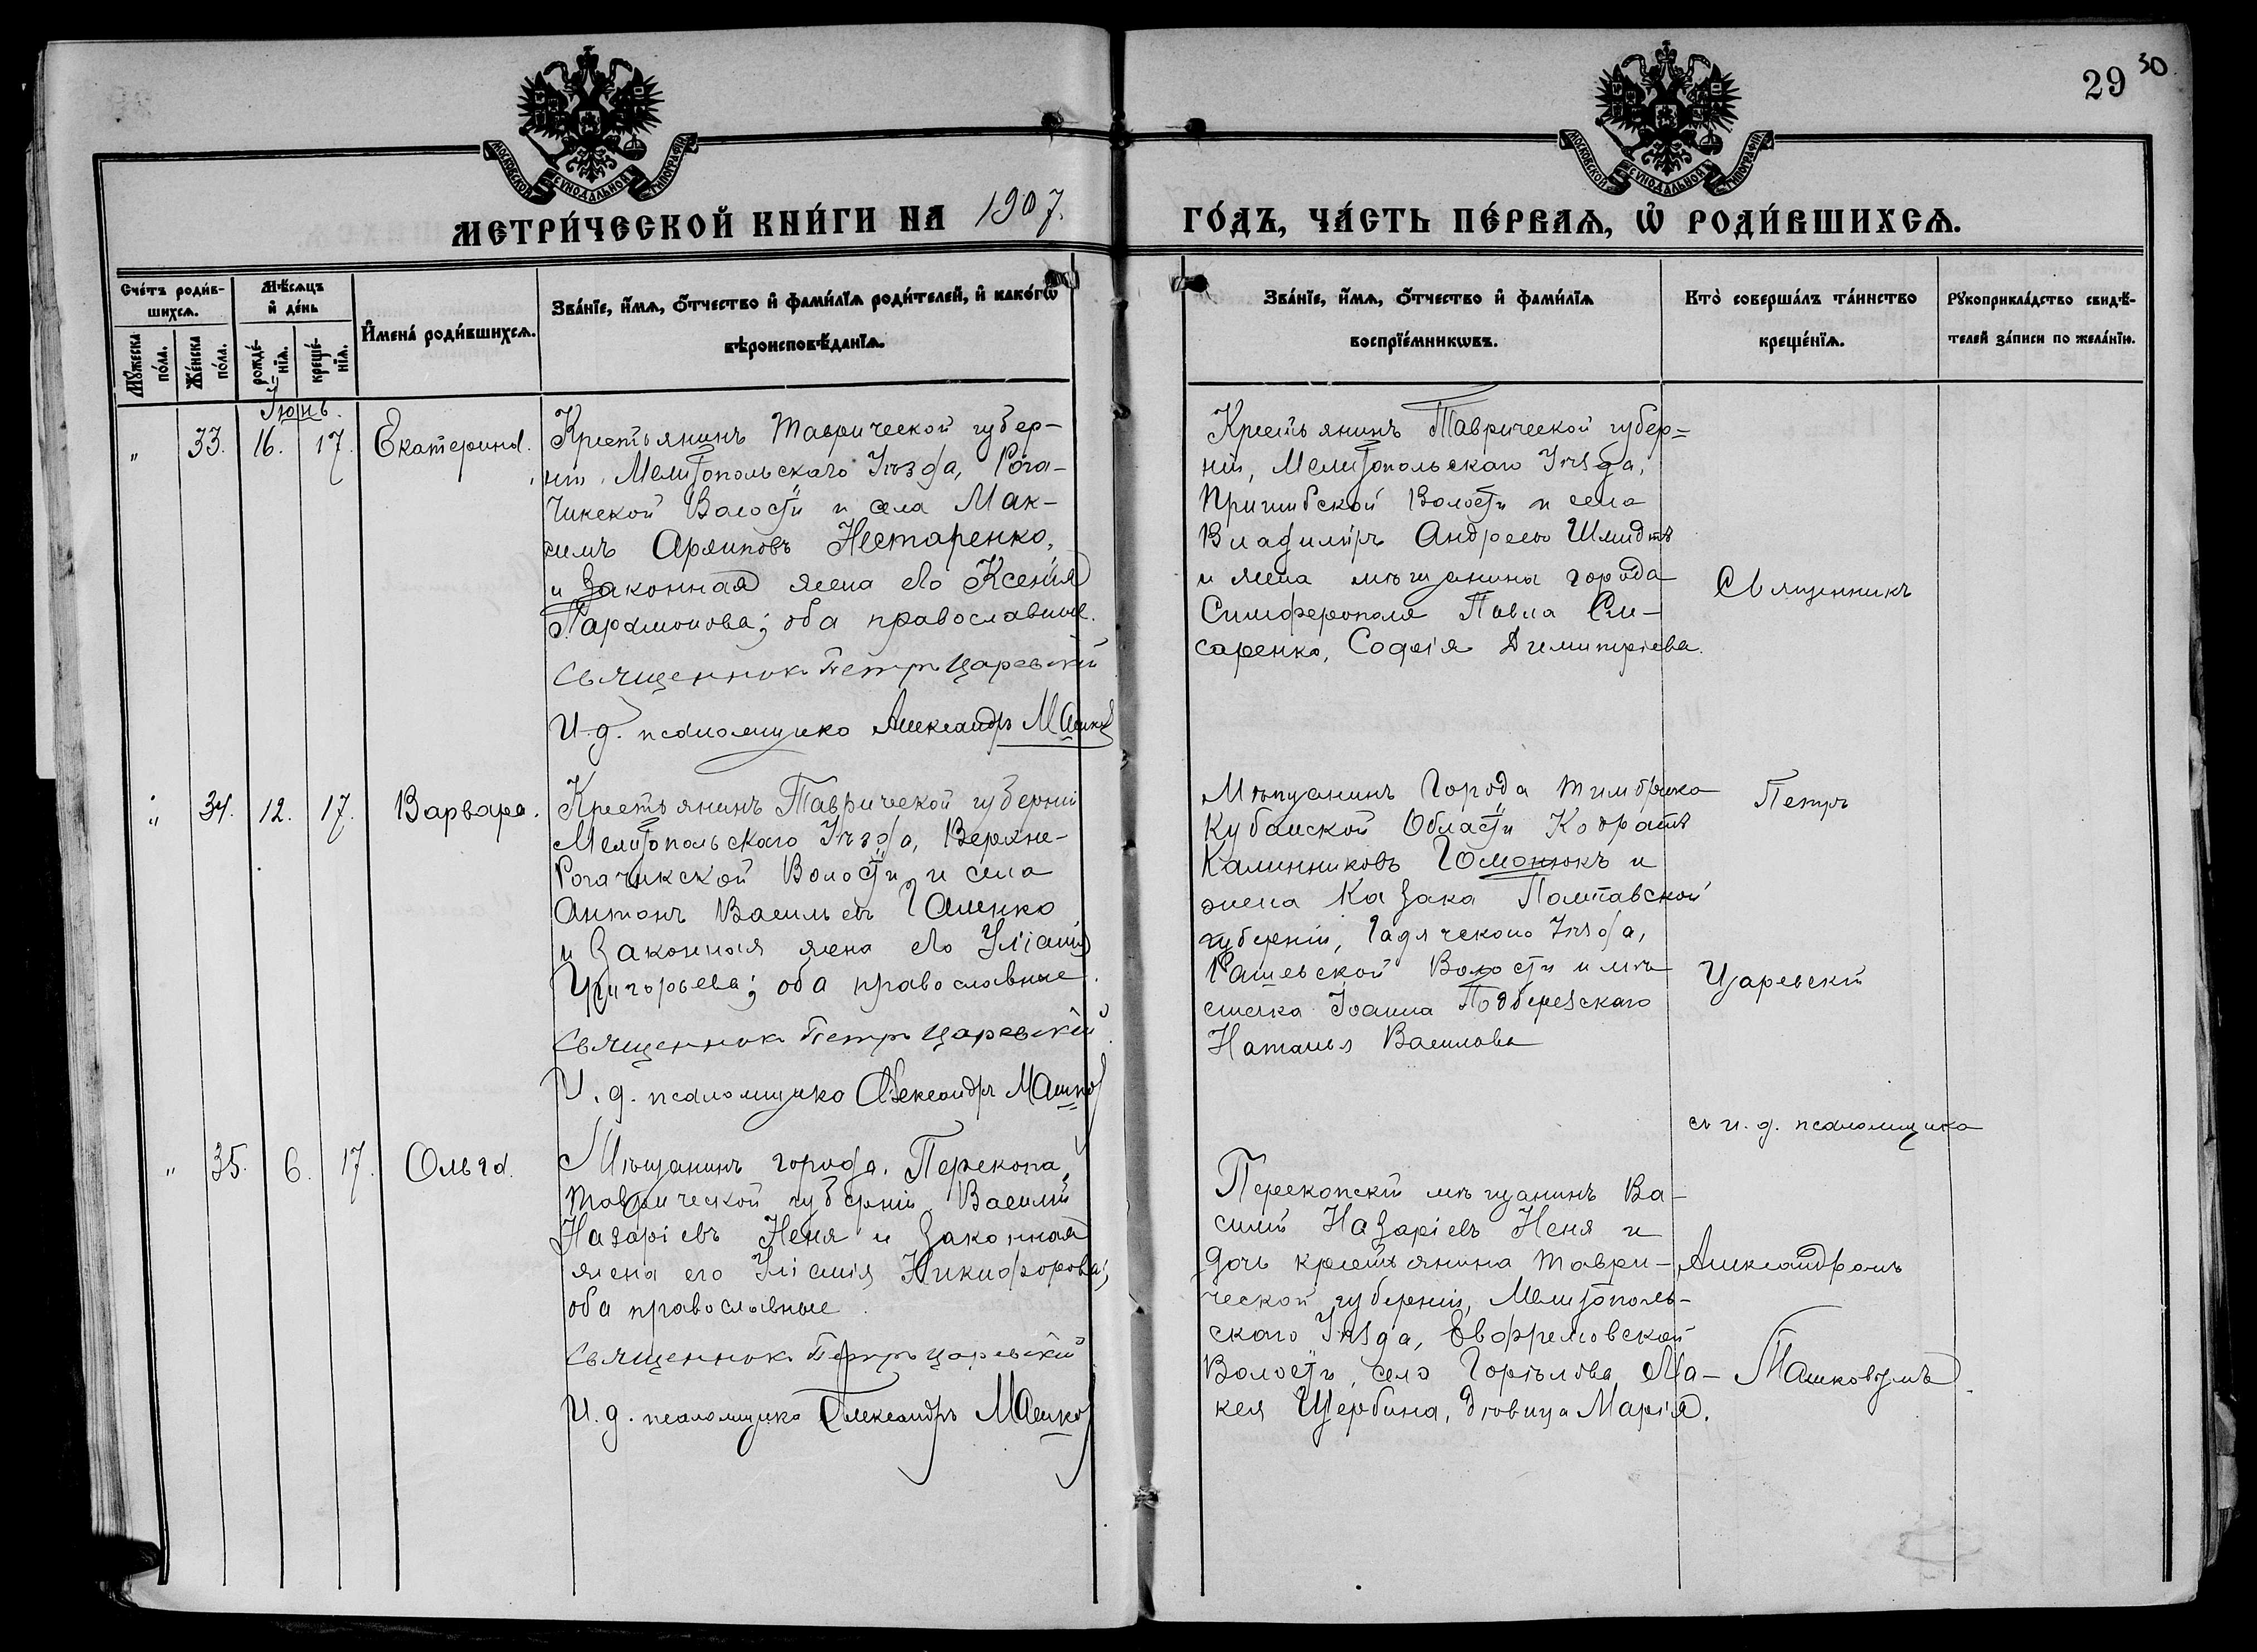 29 30
МОСКОВСКОЙ СУНОДАЛЬНОЙ ТИПОГРАФІИ
МОСКОВСКОЙ СУНОДАЛЬНОЙ ТИПОГРАФІИ
МЕТРИ́ЧЕСКОЙ КНИ́ГИ НА 1907.
ГО́ДЪ, ЧА́СТЬ ПЕ́РВАѦ, Ѡ҆ РОДИ́ВШИХСѦ.
Сче́тъ роди́в-
шихсѧ.
Мꙋ́жеска
по́ла.
Же́нска
по́ла.
Мѣ́сѧцъ
и҆ де́нь
рожде́-
нїѧ.
креще́-
нїѧ.
И҆мена̀ роди́вшихсѧ.
Зва́нїе, и҆́мѧ, ѻ҆́тчество и҆ фами́лїѧ роди́телей, и҆ како́гѡ
вѣроисповѣ́данїѧ.
Зва́нїе, и҆́мѧ, ѻ҆́тчество и҆ фами́лїѧ
воспрїе́мникѡвъ.
Кто̀ соверша́лъ та́инство
креще́нїѧ.
Рꙋкоприкла́дство свидѣ́-
телей за́писи по жела́нїю.
Іюнь.
" 33. 16. 17. Екатерина.
Крестьянинъ Таврической губер-
ніи, Мелитопольскаго Уѣзда, Рога-
чикской Волости и села Мак-
симъ Архиповъ Нестаренко,
и законная жена его Ксенія
Парамонова; оба православные.
Священник Петръ Царевскій
И. д. псаломщика Александръ Машков
Крестьянинъ Таврической губер=
ніи, Мелитопольскаго Уѣзда,
Пришибской Волости и села
Владиміръ Андреевъ Шмидтъ
и жена мѣщанина города
Симферополя Павла Сли-
саренко, Софія Димитріева.
Священникъ
" 34. 12. 17. Варвара.
Крестьянинъ Таврической губерніи
Мелитопольскаго Уѣзда, Верхне-
Рогачикской Волости и села
Антонъ Васильевъ Гаменко
и законная жена его Уліанія
Григорьева; оба православные.
Священник Петръ Царевскій
И. д. псаломщика Александръ Машков
Мѣщанинъ Города Темрюка
Кубанской Области Кодратъ
Калинниковъ Гомонюкъ и
жена Казака Полтавской
губерніи, Гадячскаго Уѣзда,
Рашевской Волости и мѣ
стечка Іоанна Подберезскаго
Наталья Василова
Петръ
Царевскій
съ и. д. псаломщика
" 35. 6. 17. Ольга.
Мѣщанинъ города Перекопа,
Таврической губерніи Василій
Назаріевъ Неня и законная
жена его Уліанія Никифорова;
оба православные.
Священник Петръ Царевскій
И. д. псаломщика Александръ Машков
Перекопскій мѣщанинъ Ва-
силій Назаріевъ Неня и
дочь крестьянина Таври-
ческой губерніи, Мелитополь-
скаго Уѣзда, Ефремовской
Волости, село Горѣлова Мо-
кея Щербина, дѣвица Марія.
Александромъ
Машковымъ.